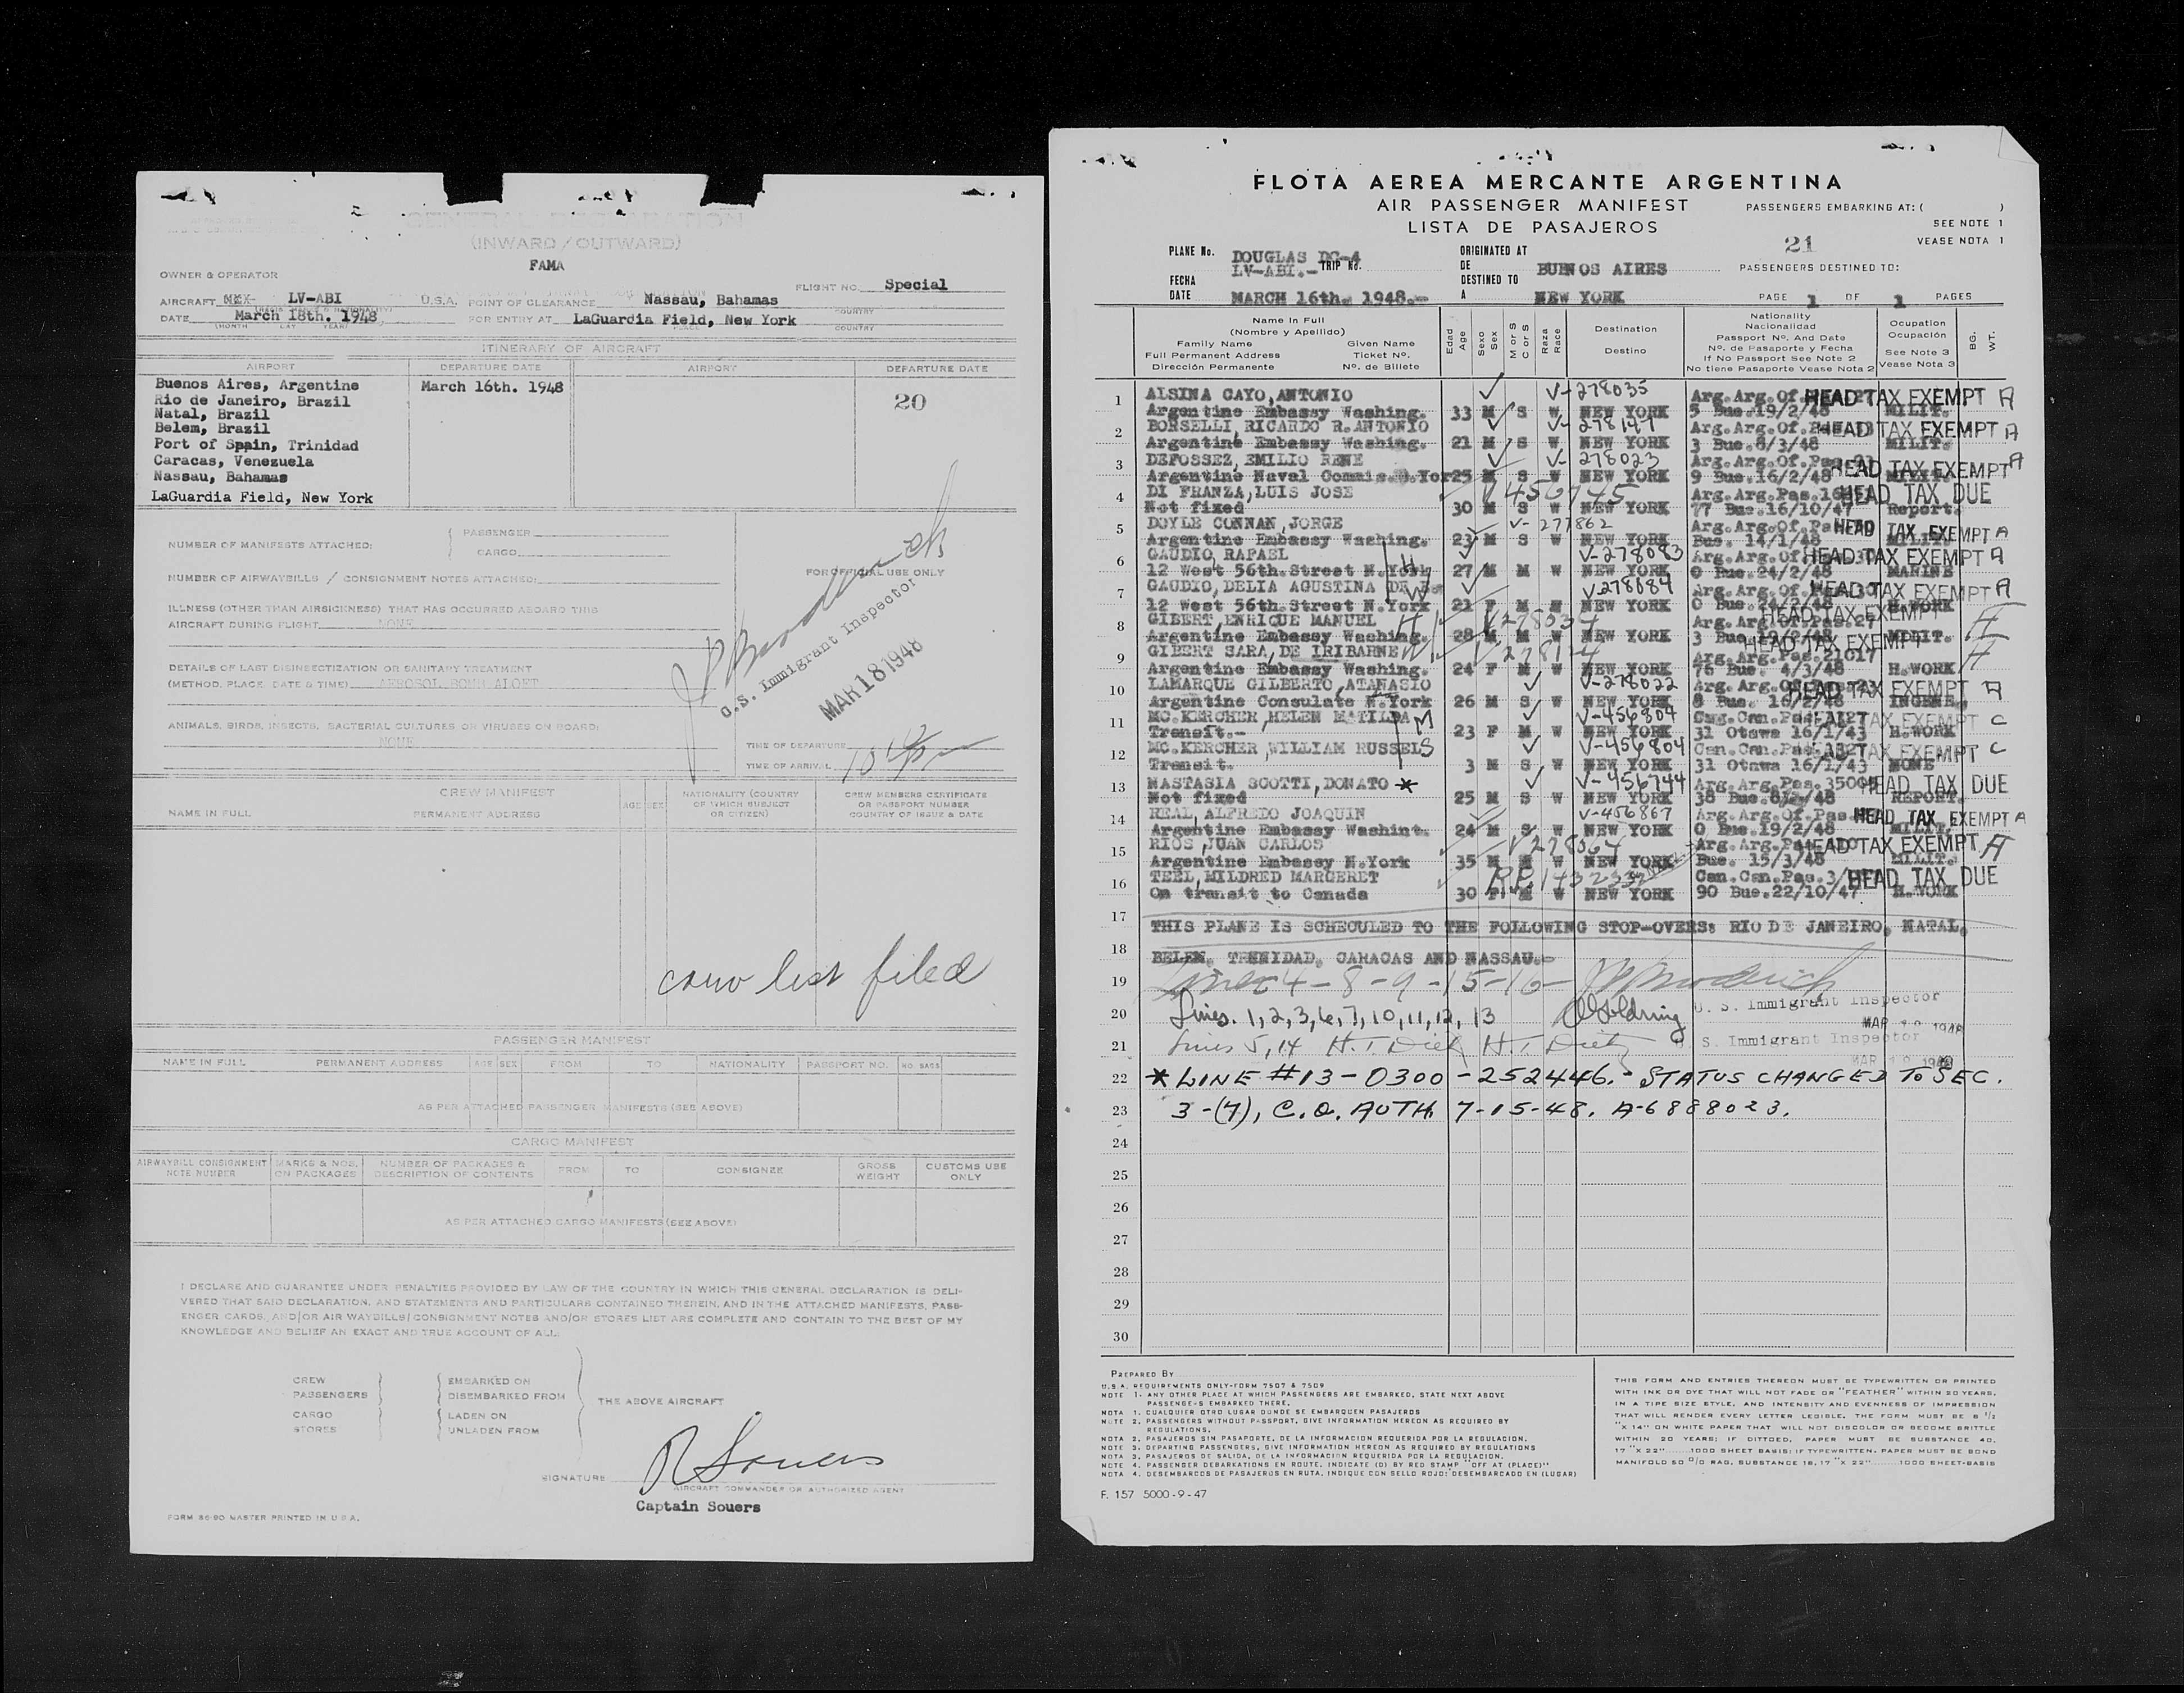 GENERAL DECLARATION
(INWARD / OUTWARD)
FAMA
OWNER & OPERATOR
FLIGHT NO. Special
AIRCRAFT NEX- LV-ABI U.S.A. POINT OF CLEARANCE Nassau, Bahamas
COUNTRY
DATE March 18th. 1948 FOR ENTRY AT LaGuardia Field, New York
(MONTH DAY YEAR) PLACE COUNTRY
ITINERARY OF AIRCRAFT
AIRPORT DEPARTURE DATE AIRPORT DEPARTURE DATE
Buenos Aires, Argentine March 16th. 1948
Rio de Janeiro, Brazil 20
Natal, Brazil
Belem, Brazil
Port of Spain, Trinidad
Caracas, Venezuela
Nassau, Bahamas
LaGuardia Field, New York
NUMBER OF MANIFESTS ATTACHED: PASSENGER
CARGO
NUMBER OF AIRWAYBILLS / CONSIGNMENT NOTES ATTACHED:
FOR OFFICIAL USE ONLY
ILLNESS (OTHER THAN AIRSICKNESS) THAT HAS OCCURRED ABOARD THIS
AIRCRAFT DURING FLIGHT NONE
U.S. Immigrant Inspector
MAR 18 1948
DETAILS OF LAST DISINSECTIZATION OR SANITARY TREATMENT
(METHOD, PLACE, DATE & TIME) AEROSOL BOMB ALOFT
ANIMALS, BIRDS, INSECTS, BACTERIAL CULTURES OR VIRUSES ON BOARD:
NONE
TIME OF DEPARTURE
TIME OF ARRIVAL
CREW MANIFEST
NAME IN FULL PERMANENT ADDRESS AGE SEX NATIONALITY (COUNTRY OF WHICH SUBJECT OR CITIZEN) CREW MEMBERS CERTIFICATE OR PASSPORT NUMBER COUNTRY OF ISSUE & DATE
crew list filed
PASSENGER MANIFEST
NAME IN FULL PERMANENT ADDRESS AGE SEX FROM TO NATIONALITY PASSPORT NO. NO BAGS
AS PER ATTACHED PASSENGER MANIFESTS (SEE ABOVE)
CARGO MANIFEST
AIRWAYBILL CONSIGNMENT NOTE NUMBER MARKS & NOS. ON PACKAGES NUMBER OF PACKAGES & DESCRIPTION OF CONTENTS FROM TO CONSIGNEE GROSS WEIGHT CUSTOMS USE ONLY
AS PER ATTACHED CARGO MANIFESTS (SEE ABOVE)
I DECLARE AND GUARANTEE UNDER PENALTIES PROVIDED BY LAW OF THE COUNTRY IN WHICH THIS GENERAL DECLARATION IS DELI-
VERED THAT SAID DECLARATION, AND STATEMENTS AND PARTICULARS CONTAINED THEREIN, AND IN THE ATTACHED MANIFESTS, PASS-
ENGER CARDS, AND/OR AIR WAYBILLS/CONSIGNMENT NOTES AND/OR STORES LIST ARE COMPLETE AND CONTAIN TO THE BEST OF MY
KNOWLEDGE AND BELIEF AN EXACT AND TRUE ACCOUNT OF ALL:
CREW EMBARKED ON
PASSENGERS DISEMBARKED FROM THE ABOVE AIRCRAFT
CARGO LADEN ON
STORES UNLADEN FROM
SIGNATURE R Souers
AIRCRAFT COMMANDER OR AUTHORIZED AGENT
Captain Souers
FORM 86-80 MASTER PRINTED IN U S A.
FLOTA AEREA MERCANTE ARGENTINA
AIR PASSENGER MANIFEST PASSENGERS EMBARKING AT: ( )
LISTA DE PASAJEROS SEE NOTE 1
21 VEASE NOTA 1
PLANE No. DOUGLAS DC-4 ORIGINATED AT
LV-ABI.- TRIP No. DE BUENOS AIRES PASSENGERS DESTINED TO:
FECHA DESTINED TO
DATE MARCH 16th. 1948.- A NEW YORK PAGE 1 OF 1 PAGES
Name In Full (Nombre y Apellido) Family Name Given Name Full Permanent Address Ticket Nº. Dirección Permanente Nº. de Billete
Edad Age Sexo Sex M or S C or S Raza Race Destination Destino
Nationality Nacionalidad Passport Nº. And Date Nº. de Pasaporte y Fecha If No Passport See Note 2 No tiene Pasaporte Vease Nota 2
Occupation Ocupación See Note 3 Vease Nota 3 BG. WT.
1 ALSINA CAYO, ANTONIO V-278035 Arg.Arg.Of. HEAD TAX EXEMPT A
Argentine Embassy Washing. 33 M S W NEW YORK 5 Bue.19/2/48 MILIT.
2 BORSELLI, RICARDO R.ANTONIO V-278147 Arg.Arg.Of. HEAD TAX EXEMPT A
Argentine Embassy Washing. 21 M S W NEW YORK 3 Bue.8/3/48 MILIT.
3 DEFOSSEZ, EMILIO RENE V-278023 Arg.Arg.Of.Pas. HEAD TAX EXEMPT A
Argentine Naval Commis.N.Yor 25 M S W NEW YORK 9 Bue.16/2/48 MILIT.
4 DI FRANZA, LUIS JOSE V 456745 Arg.Arg.Pas. HEAD TAX DUE
Not fixed 30 M S W NEW YORK 77 Bue.16/10/47 Report.
5 DOYLE CONNAN, JORGE V-277862 Arg.Arg.Of. HEAD TAX EXEMPT A
Argentine Embassy Washing. 23 M S W NEW YORK Bue. 14/1/48 MILIT.
6 GAUDIO, RAFAEL V-278083 Arg.Arg.Of. HEAD TAX EXEMPT A
12 West 56th.Street N.York H 27 M M W NEW YORK 0 Bue.24/2/48 MARINE
7 GAUDIO, DELIA AGUSTINA DE B. W V-278084 Arg.Arg.Of. HEAD TAX EXEMPT A
12 West 56th.Street N.York 21 F M W NEW YORK 0 Bue.24/2/48 H.WORK
8 GIBERT, ENRIQUE MANUEL H V278034 Arg.Arg.Of. HEAD TAX EXEMPT A
Argentine Embassy Washing. 28 M M W NEW YORK 3 Bue. 19/2/48 MILIT.
9 GIBERT SARA, DE IRIBARNE W V278124 Arg.Arg.Pas.21017 HEAD TAX EXEMPT A
Argentine Embassy Washing. 24 F M W NEW YORK 76 Bue. 4/3/48 H.WORK
10 LAMARQUE GILBERTO, ATANASIO V-278022 Arg.Arg.Of. HEAD TAX EXEMPT A
Argentine Consulate N.York 26 M S W NEW YORK 8 Bue. 16/2/48 INGENE.
11 MC.KERCHER, HELEN MATILDA M V-456804 Can.Pas. TAX EXEMPT C
Transit.- 23 F M W NEW YORK 31 Otawa 16/1/43 H.WORK
12 MC.KERCHER, WILLIAM RUSSEL S V-456804 Can.Can.Pas. TAX EXEMPT C
Transit. 3 M S W NEW YORK 31 Otawa 16/1/43 NONE
13 MASTASIA SCOTTI, DONATO * V-456744 Arg.Arg.Pas. HEAD TAX DUE
Not fixed 25 M S W NEW YORK 38 Bue. REPORT.
14 REAL, ALFREDO JOAQUIN V-456867 Arg.Arg.Of.Pas. HEAD TAX EXEMPT A
Argentine Embassy Washint. 24 M S W NEW YORK 0 Bue.19/2/48 MILIT.
15 RIOS, JUAN CARLOS V 278064 Arg.Arg. HEAD TAX EXEMPT A
Argentine Embassy N.York 35 M M W NEW YORK Bue. 15/3/48 MILIT.
16 TEEL, MILDRED MARGERET Can.Can.Pas.3/ HEAD TAX DUE
On transit to Canada 30 F M W NEW YORK 90 Bue.22/10/47 H.WORK
17 THIS PLANE IS SCHECULED TO THE FOLLOWING STOP-OVERS: RIO DE JANEIRO, NATAL,
18 BELEM, TRINIDAD, CARACAS AND NASSAU.-
19 Lines 4-8-9-15-16-
20 Lines. 1, 2, 3, 6, 7, 10, 11, 12, 13 U. S. Immigrant Inspector
21 Lines 5, 14 H.T. Dietz H.T. Dietz U. S. Immigrant Inspector
22 * LINE #13-0300-252446.- STATUS CHANGED TO SEC.
23 3-(7), C.O. AUTH. 7-15-48. A-6888023.
24
25
26
27
28
29
30
PREPARED BY
U.S.A. REQUIREMENTS ONLY-FORM 7507 & 7509
NOTE 1. ANY OTHER PLACE AT WHICH PASSENGERS ARE EMBARKED, STATE NEXT ABOVE
PASSENGE-S EMBARKED THERE.
NOTA 1. CUALQUIER OTRO LUGAR DONDE SE EMBARQUEN PASAJEROS
NOTE 2. PASSENGERS WITHOUT PASSPORT, GIVE INFORMATION HEREON AS REQUIRED BY
REGULATIONS.
NOTA 2. PASAJEROS SIN PASAPORTE, DE LA INFORMACION REQUERIDA POR LA REGULACION.
NOTE 3. DEPARTING PASSENGERS, GIVE INFORMATION HEREON AS REQUIRED BY REGULATIONS
NOTA 3. PASAJEROS DE SALIDA, DE LA INFORMACION REQUERIDA POR LA REGULACION.
NOTE 4. PASSENGER DEBARKATIONS EN ROUTE, INDICATE (D) BY RED STAMP "OFF AT (PLACE)"
NOTA 4. DESEMBARCOS DE PASAJEROS EN RUTA, INDIQUE CON SELLO ROJO: DESEMBARCADO EN (LUGAR)
F. 157 5000-9-47
THIS FORM AND ENTRIES THEREON MUST BE TYPEWRITTEN OR PRINTED
WITH INK OR DYE THAT WILL NOT FADE OR "FEATHER" WITHIN 20 YEARS,
IN A TIPE SIZE STYLE, AND INTENSITY AND EVENNESS OF IMPRESSION
THAT WILL RENDER EVERY LETTER LEGIBLE. THE FORM MUST BE 8 1/2
"X 14" ON WHITE PAPER THAT WILL NOT DISCOLOR OR BECOME BRITTLE
WITHIN 20 YEARS; IF DITTOED, PAPER MUST BE SUBSTANCE 40,
17 "X 22"........1000 SHEET BASIS; IF TYPEWRITTEN, PAPER MUST BE BOND
MANIFOLD 50 0/0 RAG, SUBSTANCE 16, 17 "X 22".........1000 SHEET-BASIS